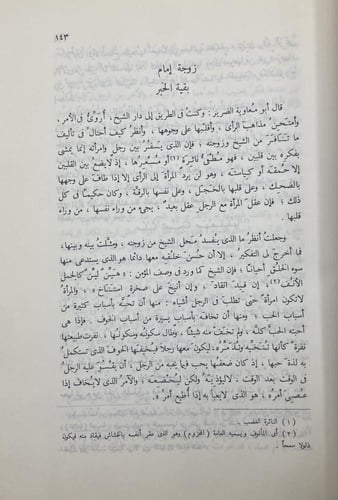 ١٤٣
زوجة إمام
بقية الخبر
قال أبو معاوية الضرير: وكنتُ في الطريق إلى دار الشيخ، أُروِّئ في الأمر،
وأمتحنُ مذاهبَ الرأى، وأُقلِّبها على وجوهها، وأنظرُ كيف أحتالُ في تأليف
ما تنافر من الشيخ وزوجته، فإن الذى يَسفُرُ بين رجلٍ وامرأته إنما يمشى
بفكره بين قلبين، فهو مُطفئُ نائرةٍ(١) أو مُسعِّرها، إذ لا يضعُ بين القلبين
إلا حُمقَه أو كياستَه، وهو لن يردَّ المرأةَ إلى الرأى إلا إذا طاف على وجهها
بالضحك، وعلى قلبها بالخجَل، وعلى نفسها بالرقَّة، وكان حكيمًا في كل
ذلك؛ فإن عقلَ المرأة مع الرجل عقلٌ بعيدٌ، يجىء من وراء نفسها، من وراء
قلبها.
وجعلتُ أنظرُ ما الذى يُفسدُ محلَّ الشيخ من زوجته، ومثَّلتُ بينه وبينها،
فما أخرج لى التفكيرُ، إلا أن حُسنَ خلُقه معها دائمًا هو الذى يستدعى منها
سوءَ الخلُق أحيانًا؛ فإن الشيخ كما ورد في وصف المؤمن: «هَيِّنٌ لَيِّنٌ كالجملِ
الأَنِفِ(٢) إن قِيدَ انقاد، وإن أُنيخَ على صخرةٍ استناخ»، والمرأةُ
لا تكون امرأةً حتى تطلب في الرجل أشياء: منها أن تحبَّه بأسبابٍ كثيرة من
أسباب الحب، ومنها أن تخافَه بأسبابٍ يسيرةٍ من أسباب الخوف. فإذا هى
أحبته الحبَّ كلَّه، ولم تخَفْ منه شيئًا، وطال سكونُه وسكونُها، نفرت طبيعتُها
نفرةً كأنها تُنخِّيه وتُذمِّرُه، ليكون معها رجلًا فيُخيفها الخوفَ الذى تستكملُ
به لذةَ حبِّها، إذ كان ضعفُها يُحبُّ فيما يُحبه من الرجل، أن يقسُوَ عليه الرجلُ
في الوقت بعد الوقت، لا ليؤذيَه ولكن ليُخضعَه، والآمر الذى لا يُخاف إذا
عُصىَ أمرُه، هو الذى لا يُعبأ به إذا أُطيع أمرُه.
(١) النائرة الغضب.
(٢) أى المألوف ويسميه العامة (المخزوم) وهو الذى عقر أنفه بالخشاش فيقاد منه فيكون
ذلولا سمحًا.